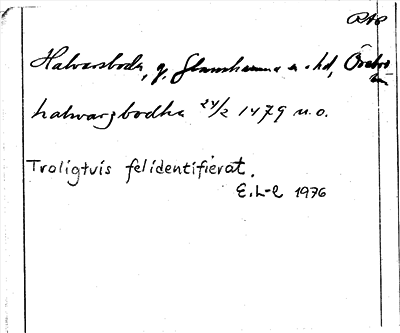 RAp
Halvarsboda, g. Glanshammars sn o hd, Örebro
län
halwarzbodha 24/2 1479 u.o.
Troligtvis felidentifierat.
E.L-l 1976